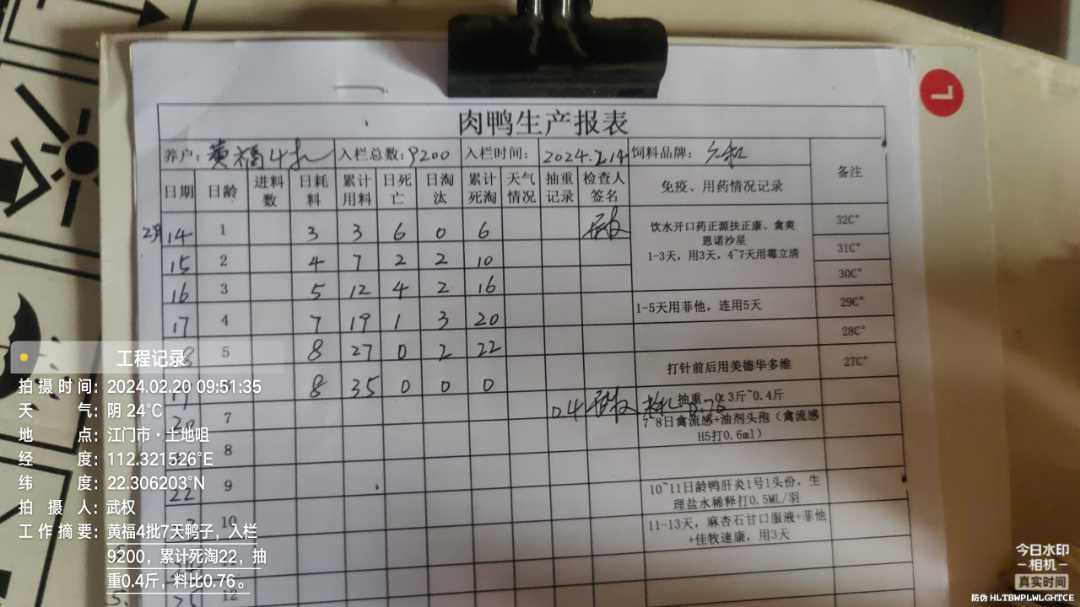 肉鸭生产报表
养户: 黄福4批 入栏总数: 9200 入栏时间: 2024.2.14 饲料品牌:
日期 日龄 进料数 日耗料 累计用料 日死亡 日淘汰 累计死淘 天气情况 抽重记录 检查人签名 免疫、用药情况记录 备注
2月14 1 3 3 6 0 6 饮水开口药正源扶正康、禽炎恩诺沙星 32C°
15 2 4 7 2 2 10 1-3天，用3天，4~7天用霉立清 31C°
16 3 5 12 4 2 16 30C°
17 4 7 19 1 3 20 1-5天用菲他，连用5天 29C°
5 8 27 0 2 22 28C°
8 35 0 0 0 打针前后用美德华多维 27C°
20 7 0.4 抽重 0.3斤~0.4斤
7~8日禽流感+油剂头孢（禽流感H5打0.6ml）
8
22 9 10~11日龄鸭肝炎1号1头份，生理盐水稀释打0.5ML/羽
10 11-13天，麻杏石甘口服液+菲他+佳牧速康，用3天
12
7
工程记录
拍摄时间: 2024.02.20 09:51:35
天气: 阴 24°C
地点: 江门市·土地咀
经度: 112.321526°E
纬度: 22.306203°N
拍摄人: 武权
工作摘要: 黄福4批7天鸭子，入栏
9200，累计死淘22，抽
重0.4斤，料比0.76。
今日水印
相机
真实时间
防伪 HLTBWPLWLGHTCE